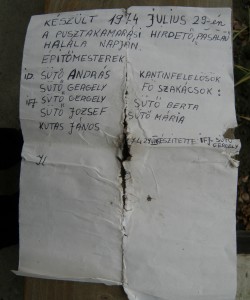 KÉSZÜLT 1974 JÚLIUS 29-én
A PUSZTAKAMARÁSI HIRDETŐ,
HALÁLA NAPJÁN.
ÉPITŐMESTEREK
ID. SÜTŐ ANDRÁS
SÜTŐ GERGELY
IFJ. SÜTŐ GERGELY
SÜTŐ JÓZSEF
KUTAS JÁNOS
KANTINFELELŐSÖK
FŐ SZAKÁCSOK:
SÜTŐ BERTA
SÜTŐ MÁRIA
IFJ. SÜTŐ
GERGELY